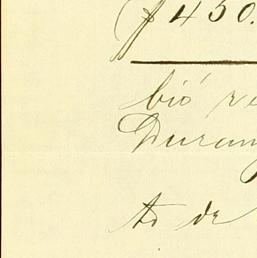 $450.
bió re
Duran
to de